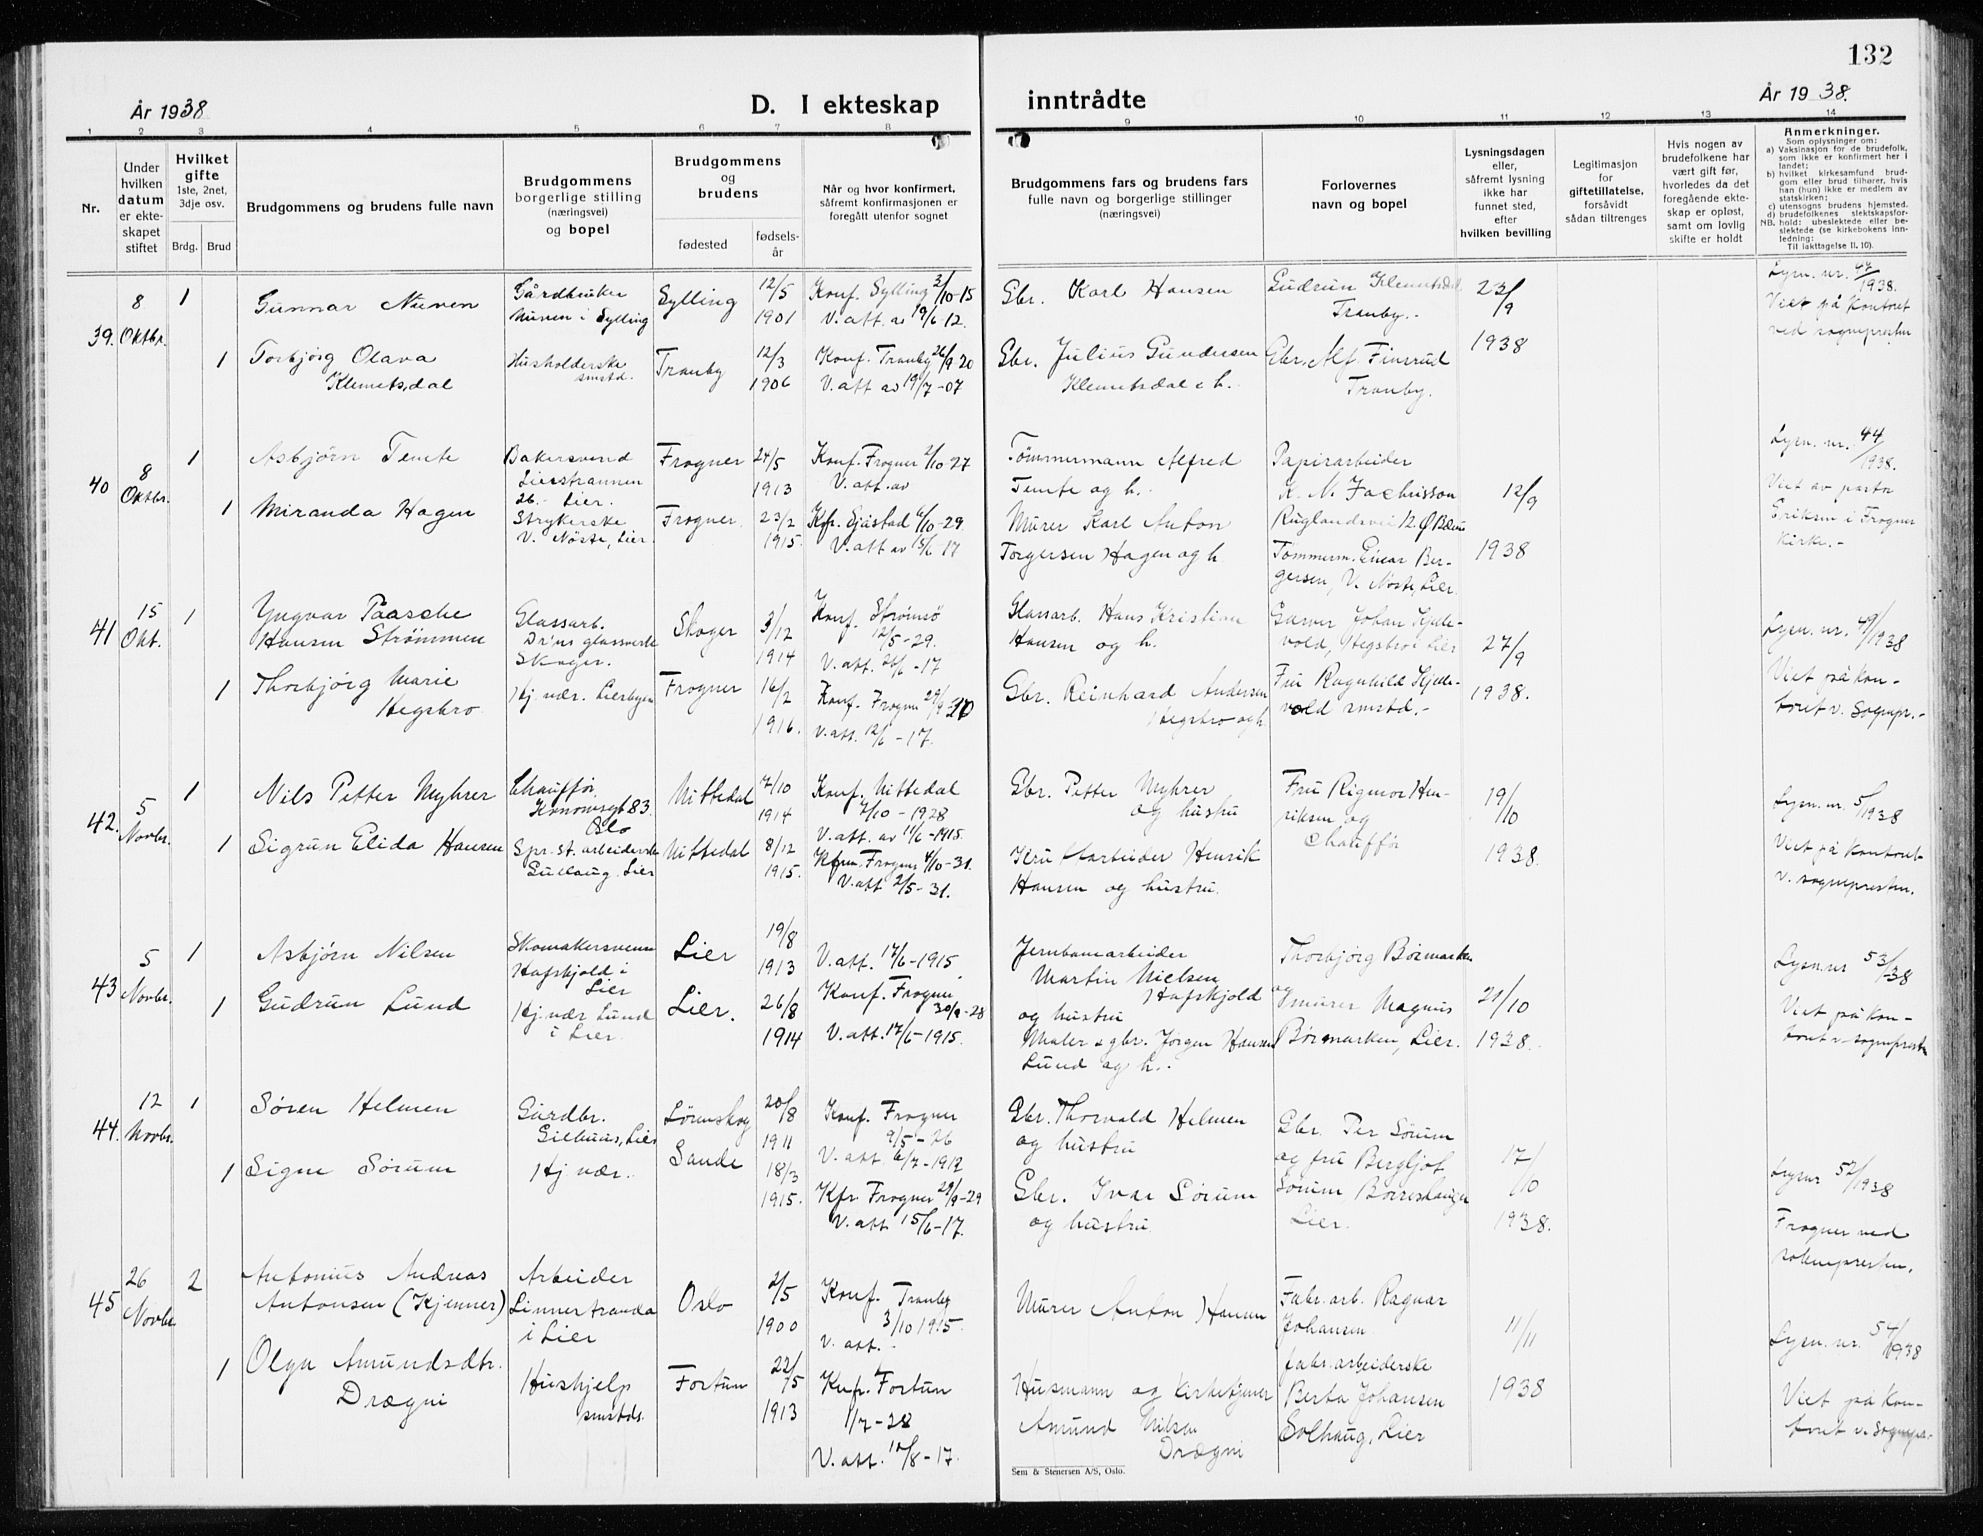 132
År 1938
D. I ekteskap inntrådte
År 1938.
1 2 3 4 5 6 7 8 9 10 11 12 13 14
Nr.
Under hvilken datum er ekteskapet stiftet
Hvilket gifte
1ste, 2net, 3dje osv.
Brdg. Brud
Brudgommens og brudens fulle navn
Brudgommens borgerlige stilling (næringsvei) og bopel
Brudgommens og brudens
fødested
fødselsår
Når og hvor konfirmert, såfremt konfirmasjonen er foregått utenfor sognet
Brudgommens fars og brudens fars fulle navn og borgerlige stillinger (næringsvei)
Forlovernes navn og bopel
Lysningsdagen eller, såfremt lysning ikke har funnet sted, efter hvilken bevilling
Legitimasjon for giftetillatelse, forsåvidt sådan tiltrenges
Hvis nogen av brudefolkene har vært gift før, hvorledes da det foregående ekteskap er opløst, samt om lovlig skifte er holdt
Anmerkninger.
Som oplysninger om:
a) Vaksinasjon for de brudefolk, som ikke er konfirmert her i landet;
b) hvilket kirkesamfund brudgom eller brud tilhører, hvis han (hun) ikke er medlem av statskirken;
c) utensogns brudens hjemsted.
d) brudefolkenes slektskapsforhold: ubeslektede eller beslektede (se kirkebokens innledning:
NB. Til iakttagelse II. 10).
39. 8 Oktbr. 1
Gunnar Nuven
Gårdbruker
Nuven i Sylling
Sylling
12/5 1901
Konf. Sylling 3/10-15
V. att. av 19/6-12.
Gbr. Karl Hansen
Gudrun Klemetsdal
Tranby.
23/9 1938
Lysn. nr. 47/1938.
Viet på kontoret
ved sognepresten
1
Torbjørg Olava
Klemetsdal
Husholderske
smstd.
Tranby
12/3 1906
Konf. Tranby 26/9 20
V. att av 19/7-07
Gbr. Julius Gundersen
Klemetsdal & h.
Gbr. Alf Finsrud
Tranby.
40 8 Oktbr. 1
Asbjørn Temte
Bakersvend
Lierstrannen
26.- Lier.
Frogner
24/5 1913
Konf. Frogner 2/10-27
V. att. av
Tømmermann Alfred
Temte og h.
Papirarbeider
12/9 1938
Lysn. nr. 44/1938.
Viet av pastor
Eriksen i Frogner
Kirke.-
1
Miranda Hagen
Strykerske
V. Nøste, Lier
Frogner.
23/2 1915.
Kfr. Sjåstad 6/10-29.
V. att av 15/6 17
Murer Karl Anton
Torgersen Hagen og h
Tømmerm. Einar Ber-
gersen, V. Nøste, Lier.
41 15 Okt. 1
Yngvar Paasche
Hansen Strømmen
Glassarb.
Dr.ns glassverk
Skoger.
Skoger
3/12 1914
Konf. Strømsø
12/5-29.
V. att. 21/6-17
Glassarb. Hans Kristian
Hansen og h.
Garver Johan Hjelle-
vold, Hegsbro Lier
27/9 1938.
Lysn. nr. 49/1938
Viet på kon-
toret v. Sognepr.-
1
Thorbjørg Marie
Hegsbro
Hj. vær. Lierbyen
Frogner
16/2 1916.
Konf. Frogner 29/9 30
V. att. 12/6-17.
Gbr. Reinhard Andersen
Hegsbro og h
Fru Ragnhild Hjelle-
vold smstd.-
42. 5 Novbr. 1
Nils Petter Myhrer
Chauffør,
Oslo
Nittedal
7/10 1914
Konf. Nittedal
7/10-1928
V. att. av 11/6-1915.
Gbr. Petter Myhrer
og hustru
Fru Rigmor Hen-
riksen og
Chauffør
19/10 1938.
Lysn. nr. 51/1938
Viet på kontoret
v. sognepresten.
1
Sigrun Elida Hansen
Spr. st. arbeiderske
Gullaug. Lier
Nittedal
8/12 1915.
Kfm. Frogner 4/10-31.
V. att 2/5-31.
Kruttarbeider Henrik
Hansen og hustru.
43 5 Novbr. 1
Asbjørn Nilsen
Skomakersvenn
Hafskjold i
Lier
Lier
19/8 1913
V. att. 17/6-1915.
Jernbanearbeider
Martin Nielsen
Hafskjold
og hustru
Thorbjørg Børmarken
og
murer Magnus
Børmarken, Lier.
21/10 1938.
Lysn. nr 53/-38
Viet på kon-
toret v. sognepresten
1
Gudrun Lund
Hj. vær Lund
i Lier.
Lier.
26/8 1914
Konf. Frogner
30/9-28
V. att. 17/6-1915.
Maler & gbr. Jørgen Hansen
Lund og h.
44. 12 Novbr. 1
Søren Helmen
Gårdbr.
Gilhuus, Lier
Lørenskog
20/8 1911
Konf. Frogner
9/5-26
V. att. 6/7-1912
Gbr. Thorvald Helmen
og hustru
Gbr. Per Sørum
og fru Bergljot
Sørum
Lier.
17/10 1938.
Lysnr 52/1938
Frogner ved
sognepresten.
1
Signe Sørum
Hj. vær.
Sande
18/3 1915.
Kfr Frogner 29/9-29
V. att 15/6-17.
Gbr. Ivar Sørum
og hustru
45 26 Novbr. 2
Antonius Andreas
Antonsen (Kjenner)
Arbeider
Linnerstranda
i Lier
Oslo
2/5 1900
Konf. Tranby
3/10 1915.
V. att.-
Murer Anton Hansen
Fabr. arb. Ragnar
Johansen
11/11 1938
Lysn. nr. 54/1938
Viet på kon-
toret v. sognepr.
1
Olga Amundsdtr.
Drægni
Hushjelp
smstds.
Fortun
22/5 1913
Knf. Fortun
1/7-28
V. att. 10/8-17.
Husmann og kirketjener
Amund Nilsen
Drægni
fabr. arbeiderske
Berta Johansen
Solhaug, Lier
Sem & Stenersen A/S, Oslo.